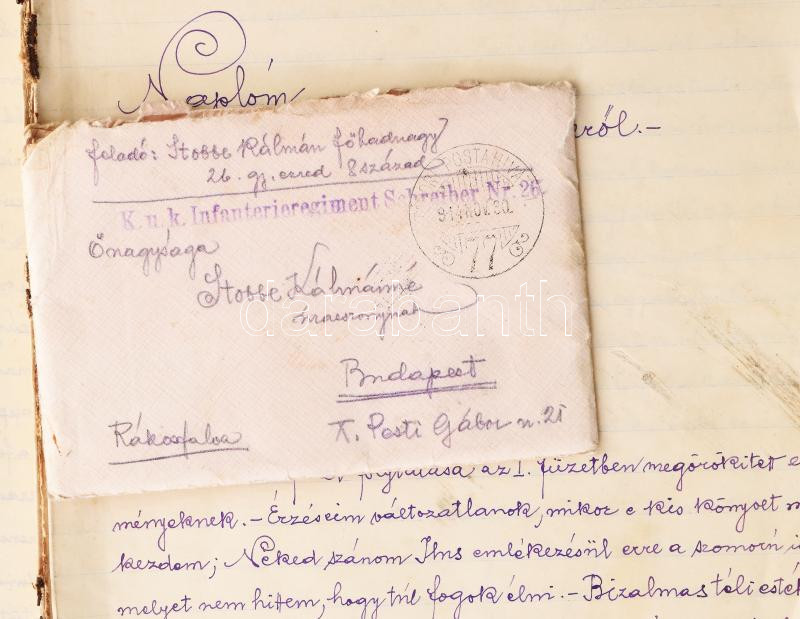 Naplóm
ről.-
feladó: Stobbe Kálmán főhadnagy
26. gy. ezred 8 század
K. u. k. Infanterieregiment Schreiber Nr. 26.
TÁBORI POSTAHIVATAL
914 NOV. 30.
77
Őnagysága
Stobbe Kálmánné
úrasszonynak
Budapest
X. Pesti Gábor u. 21
Rákosfalva
darabanth
folytatása az I. füzetben megörökitett e
ményeknek. - Érzéseim változatlanok, mikor e kis könyvet m
kezdem; Néked szánom Ilus emlékezésül erre a szomorú i
melyet nem hittem, hogy túl fogok élni. - Bizalmas téli esték